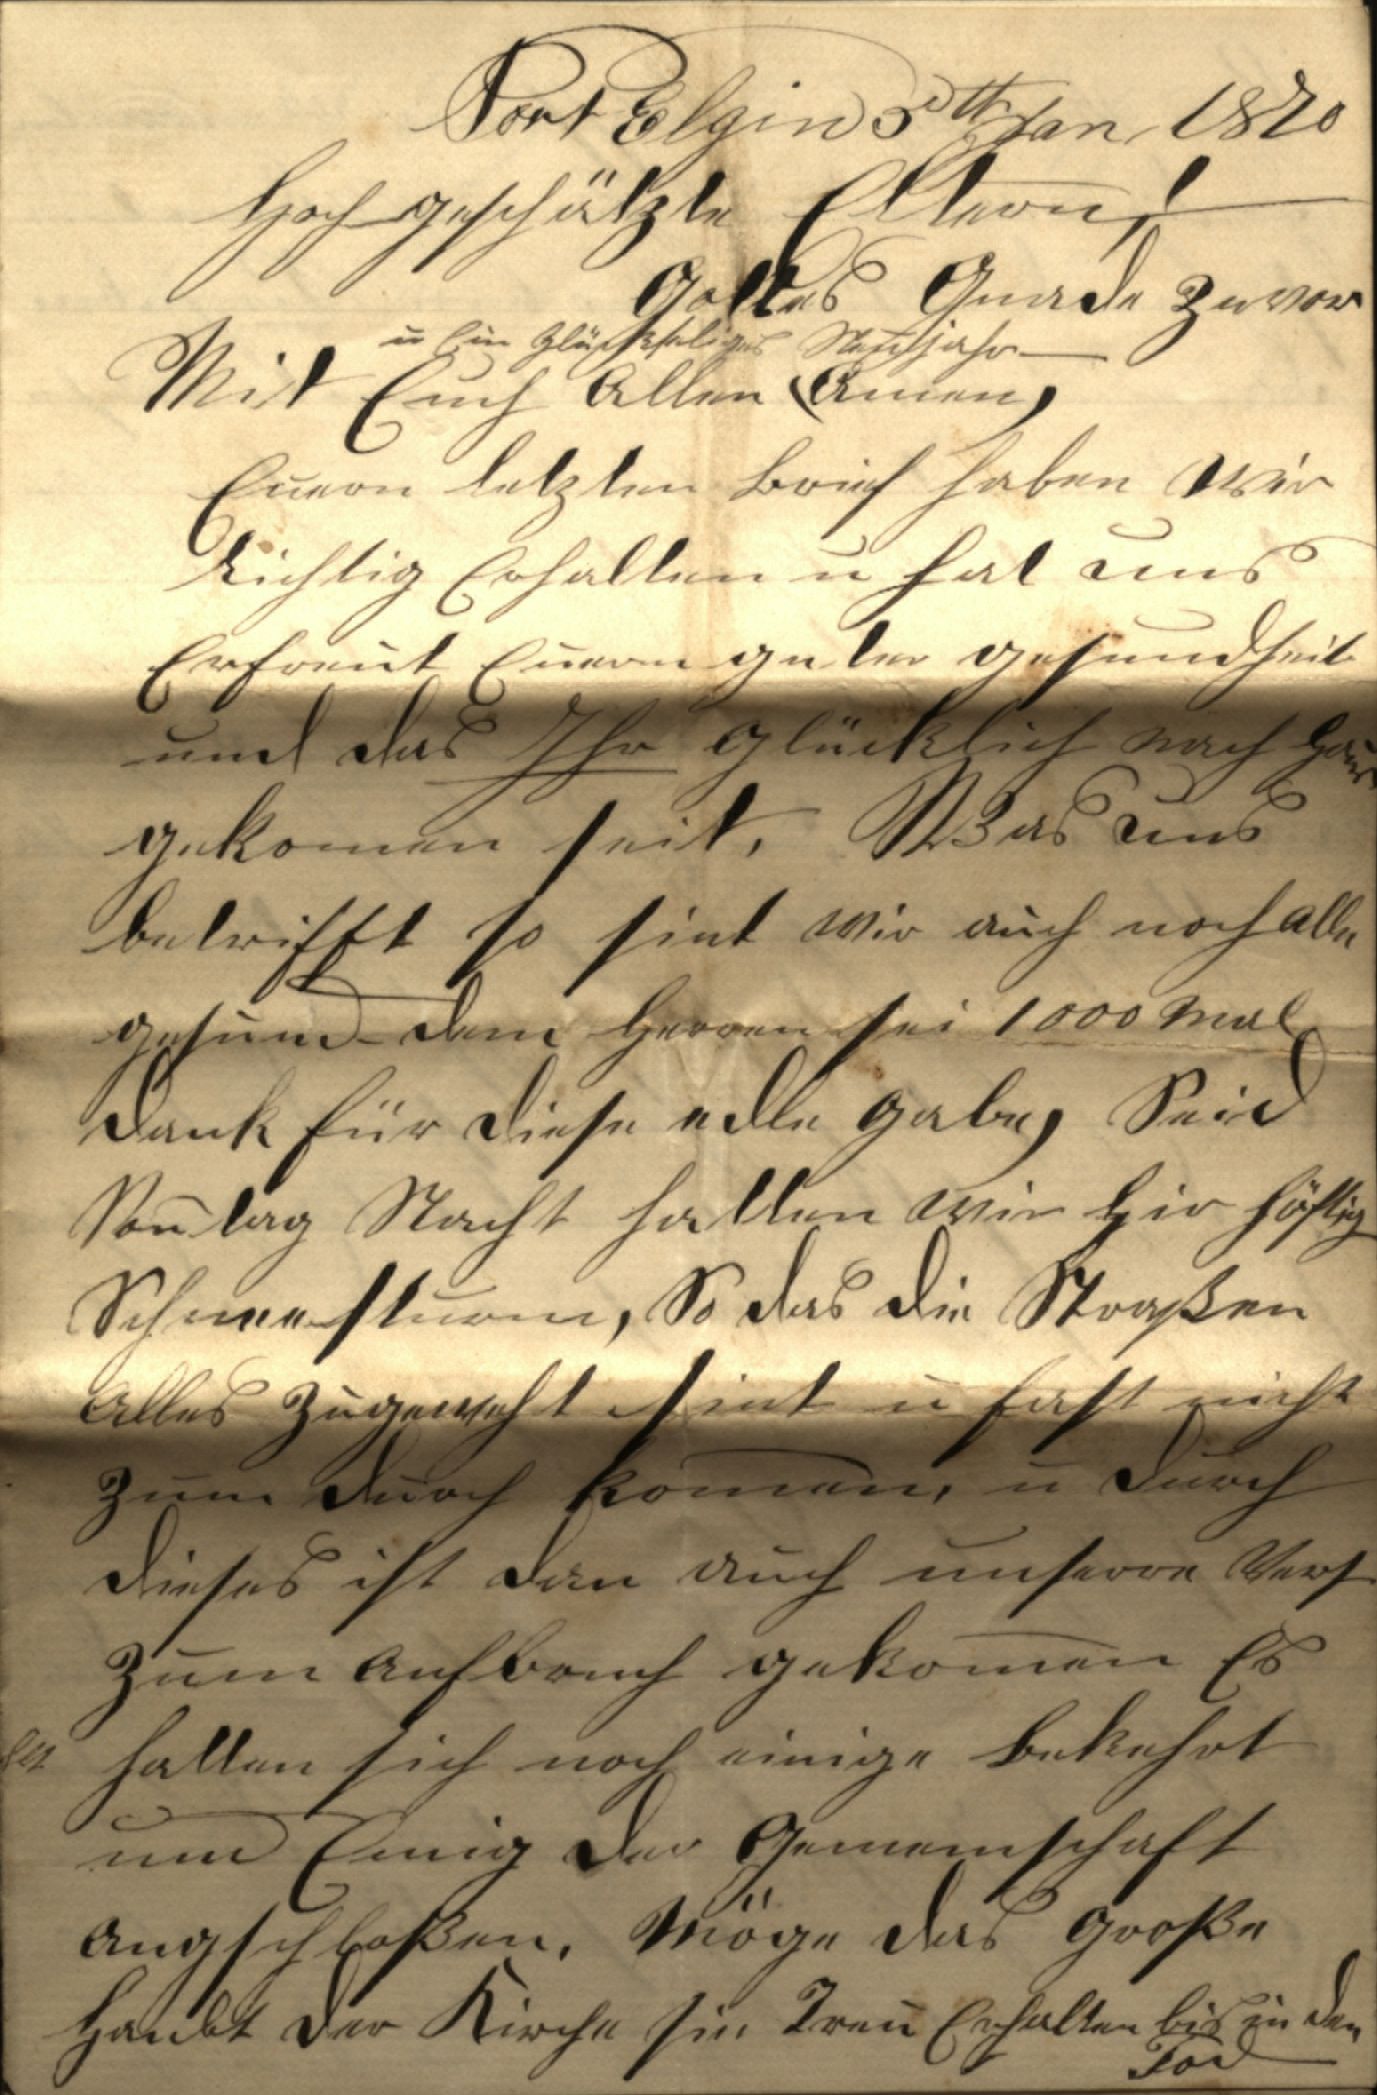 Port Elgin 5th Jan, 1870
Hochgeschätzte Eltern!
Gottes Gnade zuvor
u ein glückseliges Neujahr
Mit Euch Allen (Amen,
Euern letzten Brief haben wir
Richtig Erhalten u hat uns
Erfreut Euern guter gesundheit
und das Ihr Glücklich nach Haus
gekomen seit. Was uns
betrifft so sint wir auch noch alle
gesund dem Herren sei 1000 mal
Dank für Diese edle gabe, Seid
Sontag Nacht hatten wir hir häftig
Schneesturm, So das die Straßen
Alles Zugeweht sint u fast nicht
zum durch komen, u durch
Dieses ist dan auch unsere Vers
zum Aufbruch gekomen Es
hatten sich noch einige Bekehrt
und Einig der Gemeinschaft
angschloßen. Möge das Große
Haubt der Kirche sie Treu Erhalten bis in den
Tod